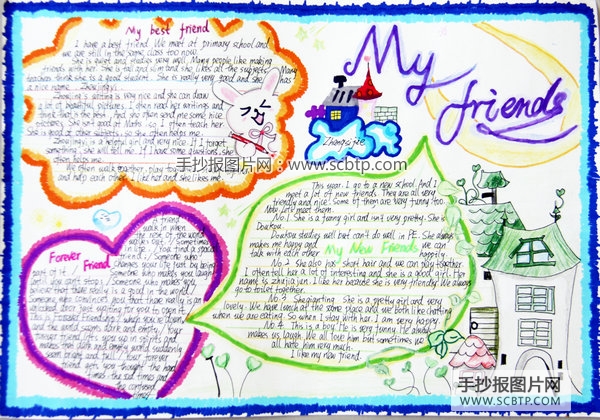 My friends
My best friend
I have a best friend. We meet at primary school and
we are still in the same class too now.
She is quiet and studies very well. Many people like making
friends with her. She is tall and slim and she likes all the subjects. Many
teachers think she is a good student. She is really very good and she has
a nice name
writing is very nice and she can draw
a lot of beautiful pictures. I often read her writings and
think that is the best. And she often send me some nice
pictures. She isn't good at Maths, so I often teach her.
She is good at other subjects, so she often helps me.
is a helpful girl and very nice. If I forget
something, she will tell me. If I have some questions, she
often helps me.
We often walk together, play to
and help each other. I like her and she likes me.
Zhangsijie
手抄报图片网：www.scbtp.com
Forever
Friend
A friend
walk in when
the rest of the world
walks out. Sometimes
in life, You find a special
friend; Someone who
changes your life just by being
part of it. Someone who makes you laugh
until you can't stop; Someone who makes you
believe that there really is good in the world.
Someone who convinces you that there really is an
unlocked door just waiting for you to open it.
This is Forever Friendship. when you're down,
and the world seems dark and empty, Your
forever friend lifts you up in spirits and
makes that dark and empty world suddenly
seem bright and full. Your forever
friend gets you through the hard
times, the sad times and
the confused
times.
My New Friends
This year, I go to a new school. And I
meet a lot of new friends. They are all very
friendly and nice. Some of them are very funny too.
Now let's meet them.
No.1 She is a tanny girl and isn't very pretty. She is
Doukou.
Doukou studies well but can't do well in P.E. She always
makes me happy and we can
talk with each other happily.
No.2 She also has short hair and we can play together.
I often tell her a lot of interesting and she is a good girl. Her
name is zhujiajin. I like her because she is very friendly. We always
go to toilet together.
No.3 Shenjianting She is a pretty girl and very
lovely. We have lunch at the same place and we both like chatting
when we are eating. So when I stay with her, I am very happy.
No.4 This is a boy. He is very funny. He always
makes us laugh. We all love him but sometimes we
all hate him very much.
I like my new friend.
手抄报图片网
WWW.SCBTP.COM